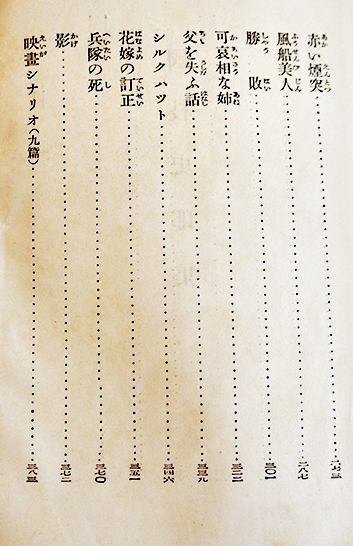 赤い煙突……二七三
風船美人……二八七
勝敗……三〇一
可哀相な姉……三二二
父を失ふ話……三三九
シルクハツト……三四六
花嫁の訂正……三五一
兵隊の死……三七〇
影……三七二
映畫シナリオ(九篇)……三八三